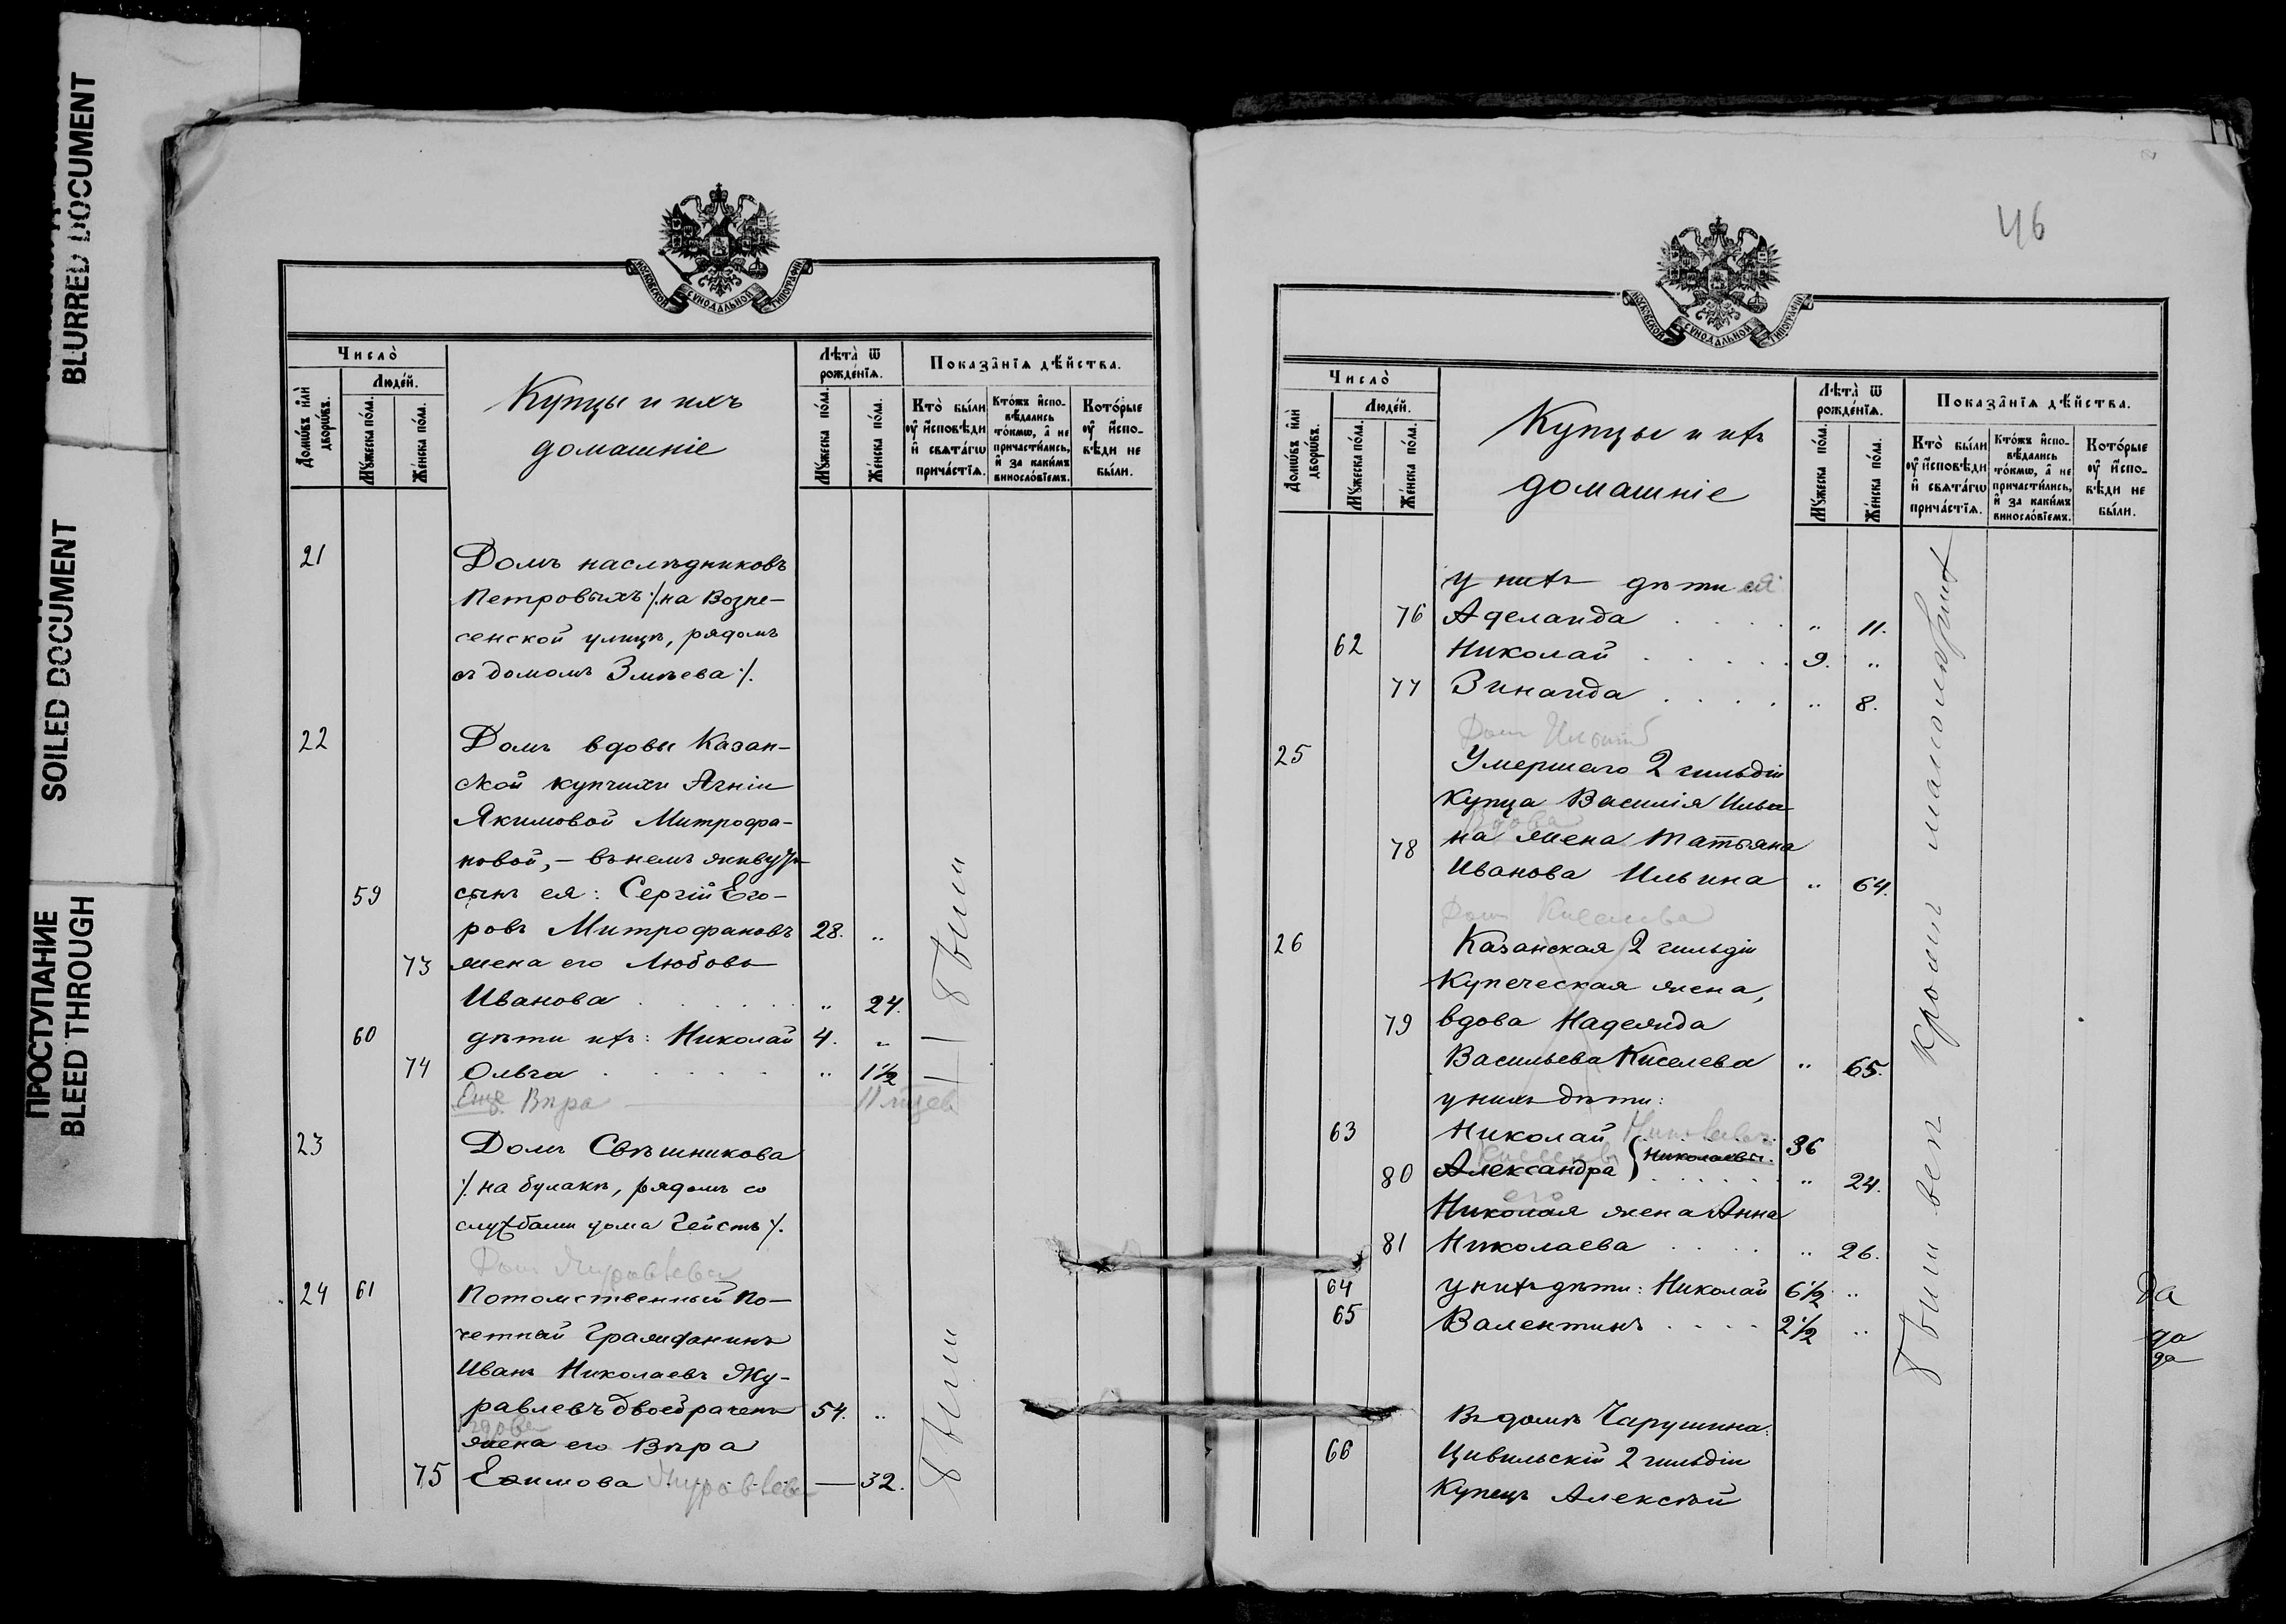 BLURRED DOCUMENT
SOILED DOCUMENT
ПРОСТУПАНИЕ
BLEED THROUGH
МОСКОВСКОЙ СУНОДАЛЬНОЙ ТИПОГРАФИИ
Число̀
Домѡ́въ и҆лѝ дворѡ́въ.
Люде́й.
Мꙋ́жеска по́ла.
Же́нска по́ла.
Купцы и ихъ
домашніе
Лѣта̀ ѿ рожде́нїѧ.
Мꙋ́жеска по́ла.
Же́нска по́ла.
Показа̑нїѧ дѣ́йства.
Кто̀ бы́ли ᲂу҆ и҆сповѣди и҆ свѧта́гѡ прича́стїѧ.
Кто́жъ и҆спо-вѣдались то́кмѡ, а҆ не причасти́лись, и҆ за каки́мъ винослόвїемъ.
Кото́рые ᲂу҆ и҆спо-вѣди не бы́ли.
21 Домъ наслѣдниковъ
Петровыхъ ⁒ на Возне-
сенской улицѣ, рядомъ
съ домомъ Змѣева ⁒
22 Домъ вдовы Казан-
ской купчихи Агніи
Якимовой Митрофа-
новой, – въ немъ живутъ
59 сынъ ея: Сергій Его-
ровъ Митрофановъ 28. „
73 жена его Любовь
Иванова . . . . . „ 24.
60 дѣти ихъ: Николай 4. „
74 Ольга . . . . . „ 1½
Еще Вѣра
были
23 Домъ Свѣшникова
⁒ на булакѣ, рядомъ со
службами дома Гейстъ ⁒
Домъ Журавлева
24 61 Потомственный По-
четный Гражданинъ
Иванъ Николаевъ Жу-
равлевъ двоебраченъ 54. „
вдова
жена его Вѣра
75 Ефимова Журавлева — 32.
были
46
МОСКОВСКОЙ СУНОДАЛЬНОЙ ТИПОГРАФИИ
Число̀
Домѡ́въ и҆лѝ дворѡ́въ.
Люде́й.
Мꙋ́жеска по́ла.
Же́нска по́ла.
Купцы и ихъ
домашніе
Лѣта̀ ѿ рожде́нїѧ.
Мꙋ́жеска по́ла.
Же́нска по́ла.
Показа̑нїѧ дѣ́йства.
Кто̀ бы́ли ᲂу҆ и҆сповѣди и҆ свѧта́гѡ прича́стїѧ.
Кто́жъ и҆спо-вѣдались то́кмѡ, а҆ не причасти́лись, и҆ за каки́мъ винослόвїемъ.
Кото́рые ᲂу҆ и҆спо-вѣди не бы́ли.
у нихъ дѣти ея
76 Аделаида . . . . „ 11.
62 Николай . . . . . 9. „
77 Зинаида . . . . „ 8.
Домъ Ильина
25 Умершаго 2 гильдіи
Купца Василія Ильи-
вдова
78 на жена Татьяна
Иванова Ильина „ 64.
Домъ Киселева
26 Казанская 2 гильдіи
Купеческая жена,
79 вдова Надежда
Васильева Киселева „ 65.
у нихъ дѣти:
63 Николай Николаевъ 36
Киселевъ
80 Александра } Николаевы. „ 24.
его
Николая жена Анна
81 Николаева . . . . „ 26.
64 у нихъ дѣти: Николай 6½ „
65 Валентинъ . . . . 2½ „
были всѣ кромѣ малолѣтнихъ
да
да
да
Въ домѣ Чарушина:
66 Цивильскій 2 гильдіи
Купецъ Алексѣй